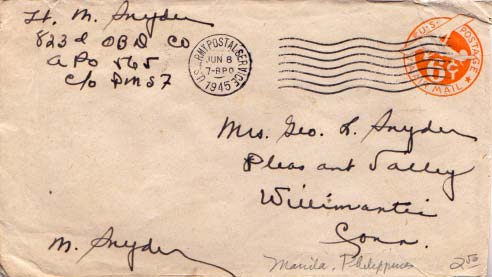 Lt. M. Snyder
823d OBD CO
APO 565
c/o PM SF
U.S. ARMY POSTAL SERVICE
JUN 8
7-BPO
1945
U.S. POSTAGE
6¢
AIR MAIL
Mrs. Geo. L. Snyder
Pleasant Valley
Willimantic
Conn.
M. Snyder
Manila, Philippines
2.50